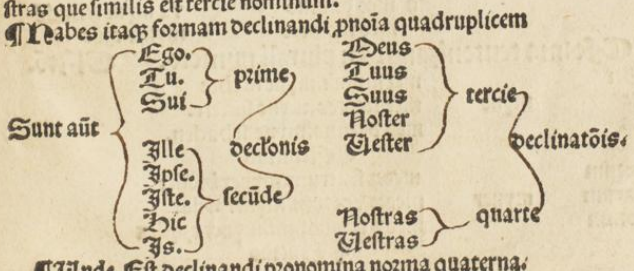 stras que similis est tercie nominum.
¶Habes itaqꝫ formam declinandi ꝓnoīa quadruplicem
Sunt aūt
Ego.
Tu.
Sui
prime
Ille
Ipse.
Iste.
Hic
Is.
secūde
declōnis
Meus
Tuus
Suus
Noster
Vester
tercie
Nostras
Vestras
quarte
declinatōis.
¶Unde. Est declinandi pronomina norma quaterna.